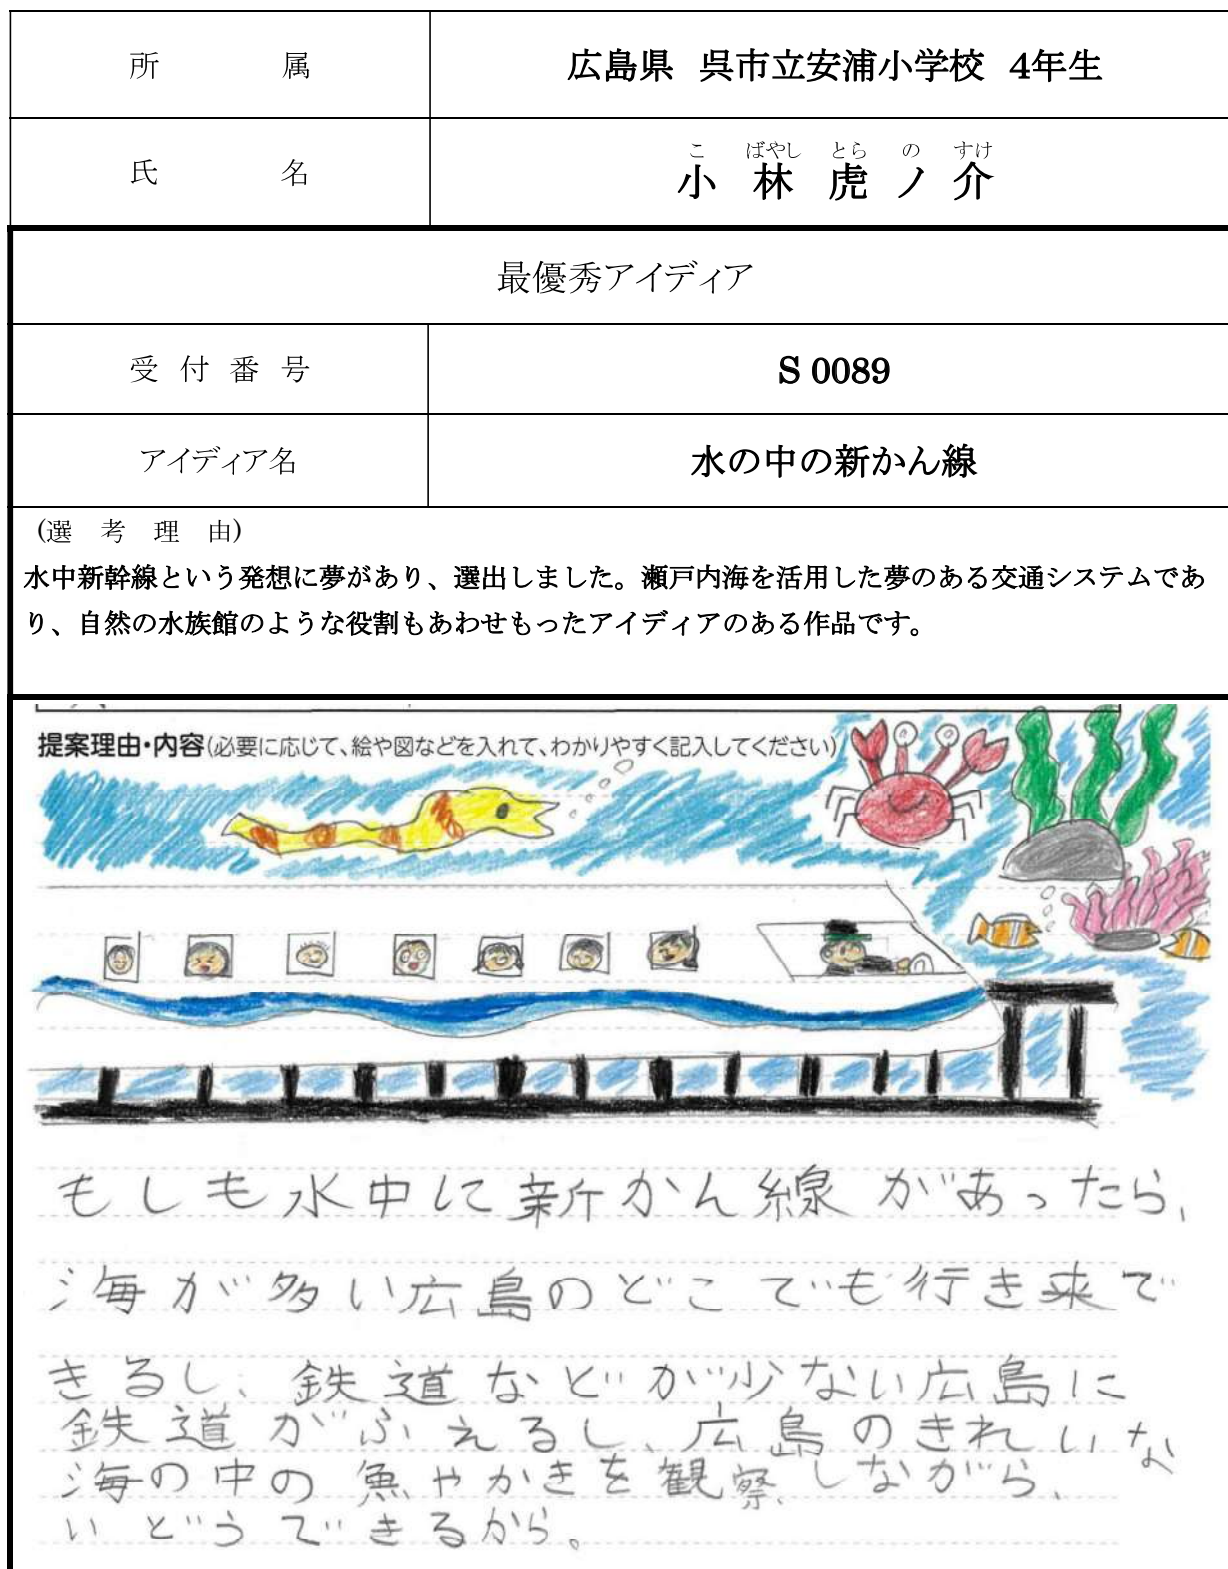 所属 広島県 呉市立安浦小学校 4年生
こ ばやし とら の すけ
氏名 小林虎ノ介
最優秀アイディア
受付番号 S 0089
アイディア名 水の中の新かん線
(選考理由)
水中新幹線という発想に夢があり、選出しました。瀬戸内海を活用した夢のある交通システムであ
り、自然の水族館のような役割もあわせもったアイディアのある作品です。
提案理由・内容(必要に応じて、絵や図などを入れて、わかりやすく記入してください)
もしも水中に新かん線があったら、
海が多い広島のどこでも行き来で
きるし、鉄道などが少ない広島に
鉄道がふえるし、広島のきれいな
海の中の魚やかきを観察しながら、
いどうできるから。